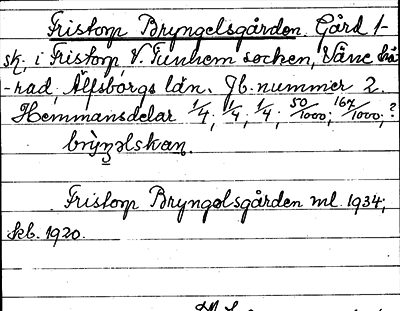 Fristorp Bryngelsgården. Gård 1-
sk, i Fristorp V. Tunhem socken, Väne hä-
-rad, Älfsborgs län. Jb. nummer 2.
Hemmansdelar 1/4; 1/4; 1/4; 50/1000; 167/1000; ?
Fristorp Bryngelsgården ml. 1934;
skb. 1920.